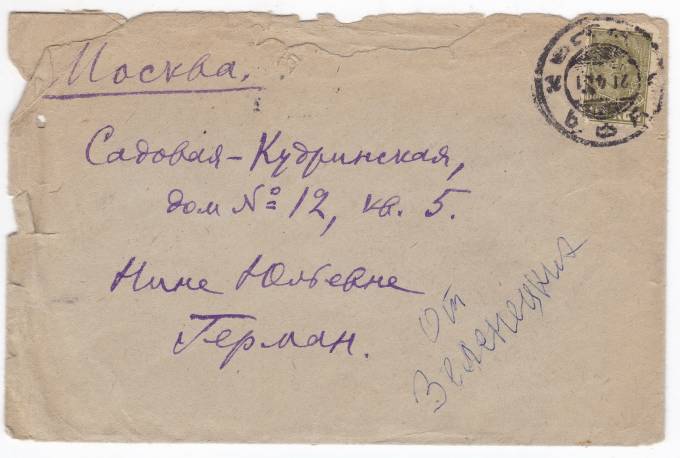 Москва.
Садовая-Кудринская,
дом № 12, кв. 5.
Нине Юльевне
Герман.
От
Зеленецких